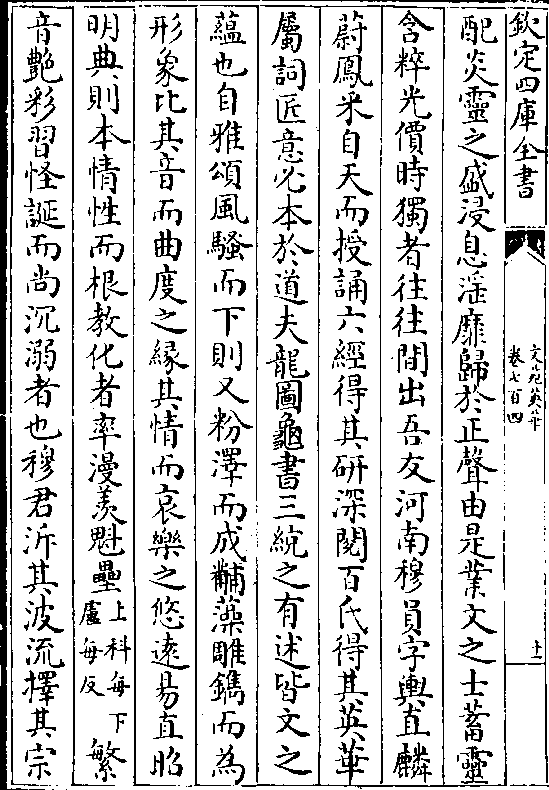 欽定四庫全書
文苑英華
卷七百四
十一
配炎靈之盛浸息淫靡歸於正聲由是業文之士蓄靈
含粹光價時獨者往往間出吾友河南穆員字輿直麟
蔚鳳采自天而授誦六經得其研深閱百氏得其英華
屬詞匠意必本於道夫龍圖龜書三統之有述皆文之
蘊也自雅頌風騷而下則又粉澤而成黼藻雕鐫而為
形象比其音而曲度之緣其情而哀樂之悠遠易直昭
明典則本情性而根教化者率漫羨魁壘上科每下盧每反繁
音艷彩習怪誕而尚沉溺者也穆君泝其波流擇其宗